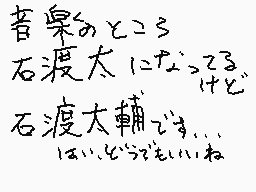 音楽のところ
石渡太になってる
けど
石渡太輔です...
はい、どうでもいいね